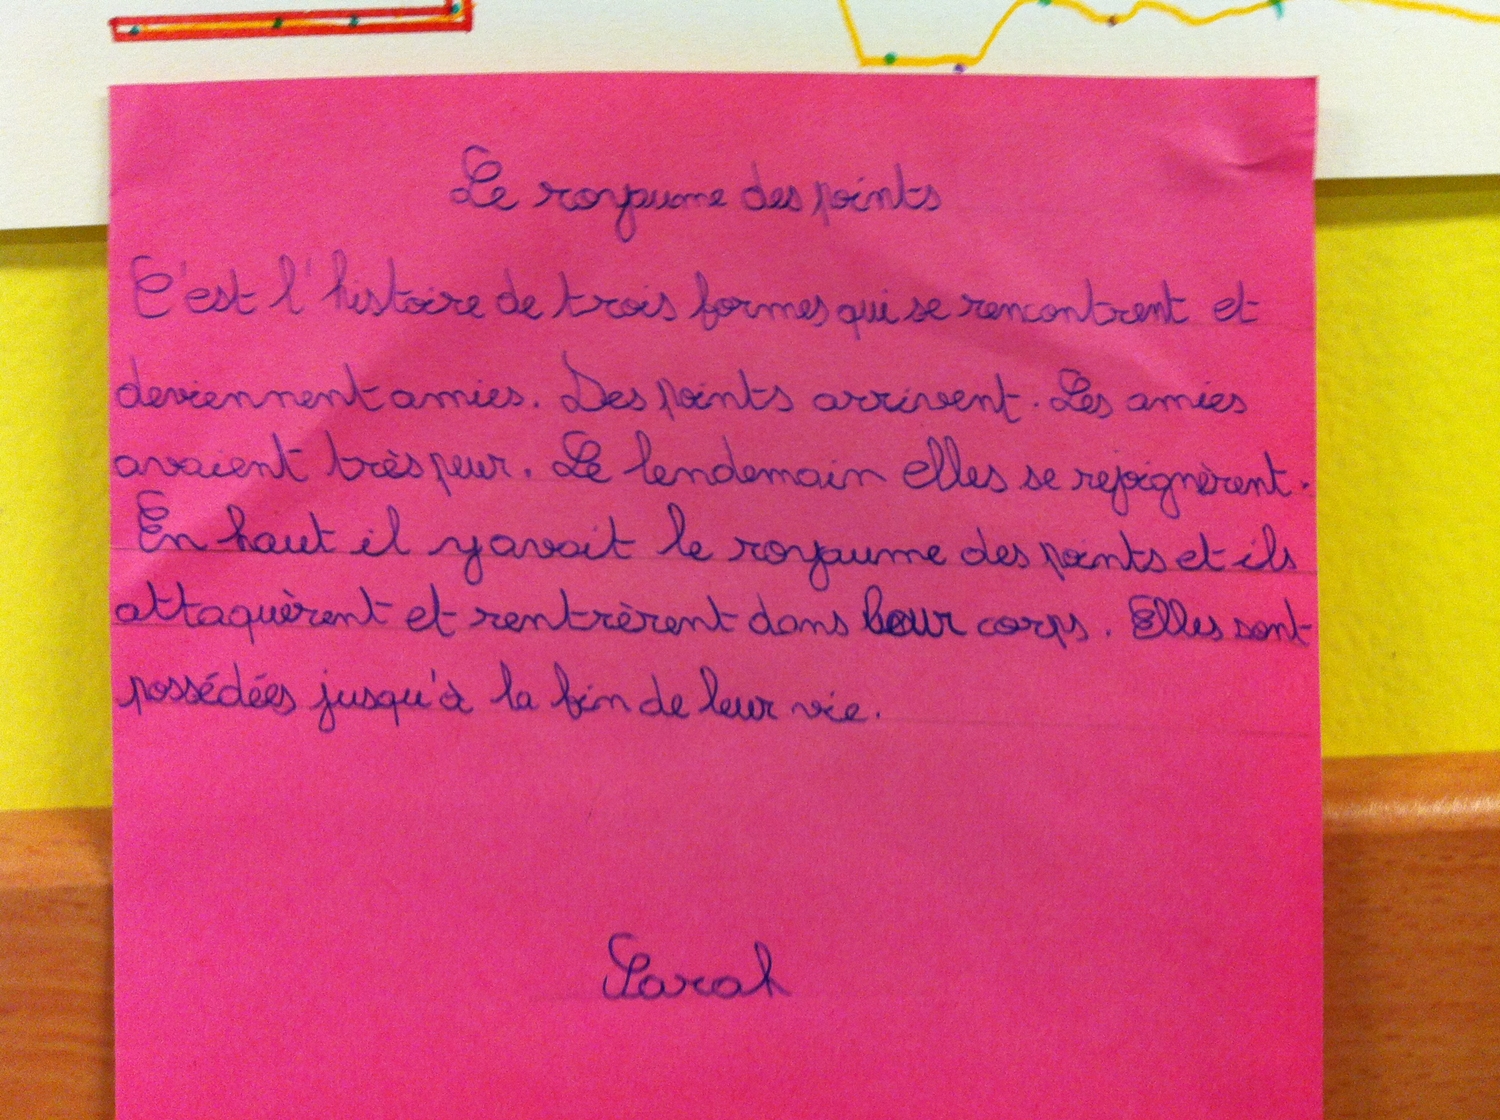 Le royaume des points
C'est l'histoire de trois formes qui se rencontrent et
deviennent amies. Des points arrivent. Les amies
avaient très peur. Le lendemain elles se rejoignèrent.
En haut il y avait le royaume des points et ils
attaquèrent et rentrèrent dans leur corps. Elles sont
possédées jusqu'à la fin de leur vie.
Sarah